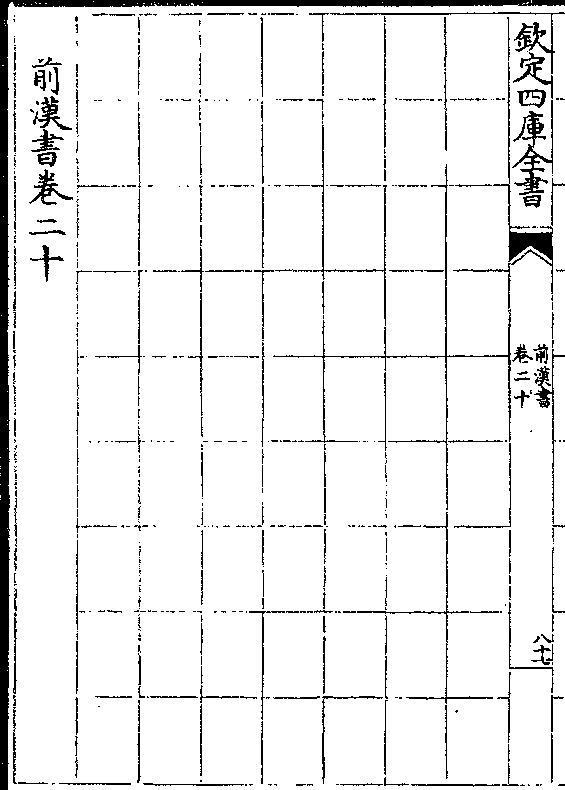 欽定四庫全書
前漢書
卷二十
八十七
前漢書卷二十